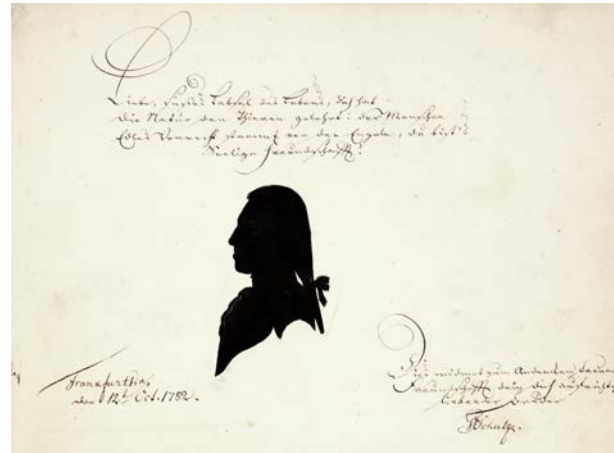 Liebe, süßes Labsal des Lebens, dich hat
die Natur den Thieren gelehrt: der Menschen
Edles Vorrecht stammt von den Engeln, du bist's
Seelige Freundschafft!
Frankfurth
den 12t. Oct. 1782.
Dis widmet zum Andencken treuer
Freundschafft dein dich aufrichtig
liebender Bruder
Schulze.